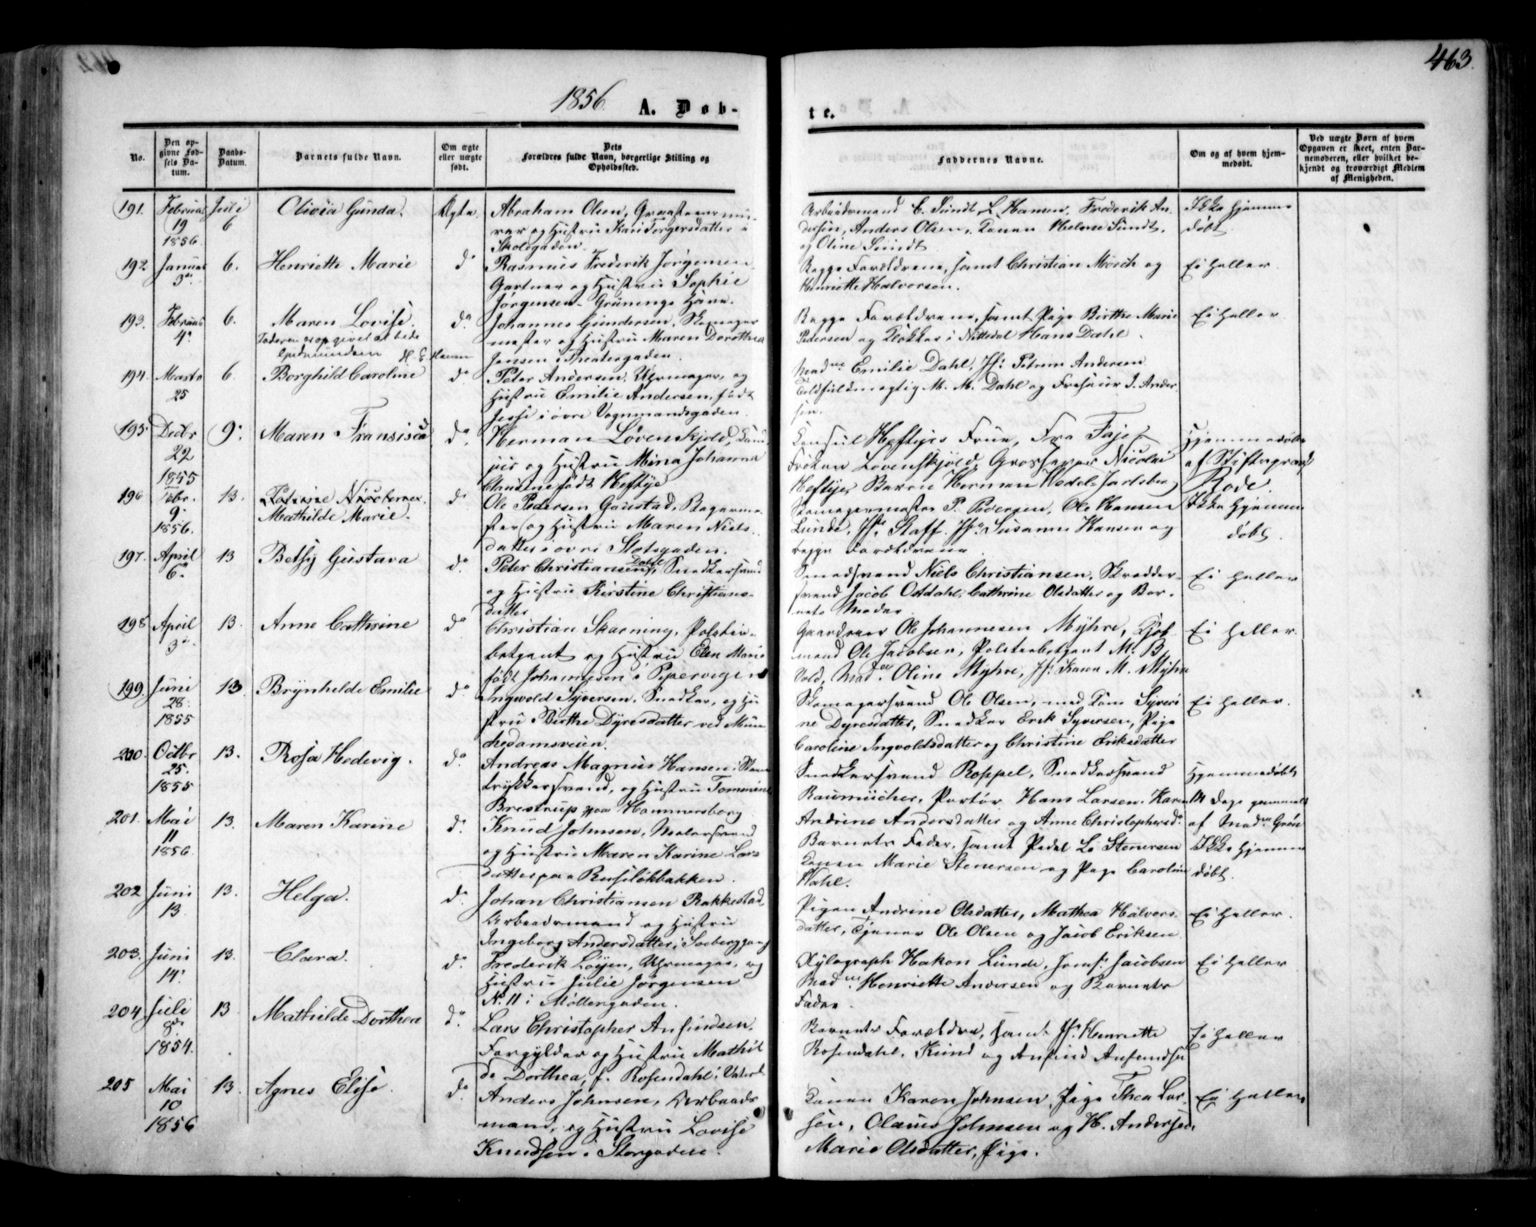 463.
1856. A. Døb- te.
No.
Den opgivne Fødsels Datum.
Daabs-Datum.
Barnets fulde Navn.
Om ægte eller uægte født.
Dets Forældres fulde Navn, borgerlige Stilling og Opholdssted.
Faddernes Navne.
Om og af hvem hjemmedøbt.
Ved uægte Børn af hvem Opgaven er skeet, enten Barnemoderen, eller hvilket bekjendt og troværdigt Medlem af Menigheden.
191. Februar 19 1856. Juli 6 Olivia Gunda. Ægte.
Abraham Olsen,
og Hustru Kari Torgersdatter i
Skolegaden.
Arbeidsmand C. Sundt, L. Hansen, Frederik An-
dersen, Anders Olsen, Konen Helene Sundt,
og Oline Sundt
Ikke hjemme-
døbt.
192 Januar 3de 6. Henriette Marie do
Rasmus Frederik Jørgensen
Gartner og Hustru Sophie
Jørgensen Grünings Have.
Begge Forældrene, samt Christian Mosch og
Henriette Halvorsen.
Ei heller
193. Februar 4de 6. Maren Lovise do
Johannes Gundersen, Skomager
mester og Hustru Maren Dorothea
Jensen i Theatergaden.
Begge Forældrene, samt Pige Birthe Marie
Pedersen og Klokker i Nittedal Hans Dahl.
Ei heller
194. Marts 25 6. Borghild Caroline do
Peter Andersen, Uhrmager, og
Hustru Emilie Andersen, født
i øvre Vognmandsgaden.
Madme Emilie Dahl, Jfr. Petrea Andersen
Toldfuldmægtig M. M. Dahl og Frisør J. Ander
sen.
195 Decbr 22 1855 9. Maren Fransisca do
Herman Løvenskjold,
og Hustru Mina Johanna
født Heftye
Consul Heftyes Frue,
Frøken Lovenskjold, Grosserer Nicolai
Heftye, Baron Herman Wedel Jarlsberg
Hjemmedøbt
af Stiftsprovst
Rode.
196 Febr. 9. 1856. 13.
Mathilde Marie. do
Ole Pedersen Gaustad, Skomagerme-
ster og Hustru Maren Niels-
datter i øvre Slotsgaden.
Skomagermester P. Pedersen, Ole Hansen
Lunde, Jfr. Staff, Jfr. Susanne Hansen og
begge Forældrene
Ikke hjemme
døbt.
197. April 6te 13 Betsy Gustava do
Peter Christiansen Dahl, Snedkersvend
og Hustru Kirstine Christians-
datter
Smedsvend Niels Christiansen, Skrædder-
svend Jacob Ostdahl, Cathrine Olsdatter og Bar-
nets Moder
Ei heller
198 April 3de 13. Anne Cathrine do
Christian Skarning, Politie-
betjent og Hustru Elen Marie
født Johannesen i Pipervigen
Gaardeier Ole Johannesen Myhre, Kjøb
mand Ole Jacobsen, Politiebetjent M. B.
Vold, Madme Oline Myhre, Jfr. Karen M. Myhre
Ei heller.
199. Juni 28. 1855 13. Brynhilde Emilie do
Ingvold Syversen, Snedker, og Hu
stru Birthe Dyresdatter ved Mun
kedamsveien.
Skomagersvend Ole Olsen, med Kone Syveri
ne Dyresdatter, Snedker Erik Syversen, Pige
Caroline Ingvoldsdatter og Christine Eriksdatter
Ei heller.
200. Octbr 25. 1855 13. Rosa Hedevig. do
Andreas Magnus Hansen, Steen
trykkersvend, og Hustru Tommine
Brestrup paa Hammersborg
Snedkersvend Roppel, Snedkersvend
Baumücher, Portør Hans Larsen, Karen
Andrine Andersdatter og Anne Christophersdr
Hjemmedøbt
14 Dage gammelt
af Madme Grøn
201. Mai 11 1856. 13. Maren Karine do
Knud Johnsen, Malersvend
og Hustru Maren Karine Lars
datter paa Ruseløkbakken.
Barnets Fader, samt Pedel Lo Stenersen
Konen Marie Stenersen og Pige Caroline
Wahl.
Ikke hjemme
døbt.
202 Juni 13. 13. Helga. do
Johan Christiansen Rakkestad,
Arbeidsmand og Hustru
Ingeborg Andersdatter i Soeberggang
Pigen Andrine Olsdatter, Mathea Halvors
datter, Tjener Ole Olsen og Jacob Eriksen
Ei heller.
203. Juni 14. 13. Clara. do
Frederik Løyen, Uhrmager, og
Hustru Julie Jørgensen
No. 11 i Møllergaden.
Xylograph Hakon Lunde, Jomf. Jacobsen
Madme Henriette Andersen og Barnets
Fader
Ei heller
204 Juli 8de 1854. 13 Mathilde Dorthea do
Lars Christopher Anfindsen,
Forgylder og Hustru Mathil
de Dorthea, f. Rosendahl,
Barnets Forældre, samt Jfr. Henriette
Rosendahl, Knud og Anfind Anfindsen
Ei heller
205 Mai 10 1856 13. Agnes Elise. do
Anders Johnsen, Arbeids
mand, og Hustru Lovise
Knudsen i Storgaden.
Konen Karen Johnsen, Pige Thea Lar
sen, Olaus Johnsen og H. Andersen,
Marie Olsdatter, Pige.
Ei heller